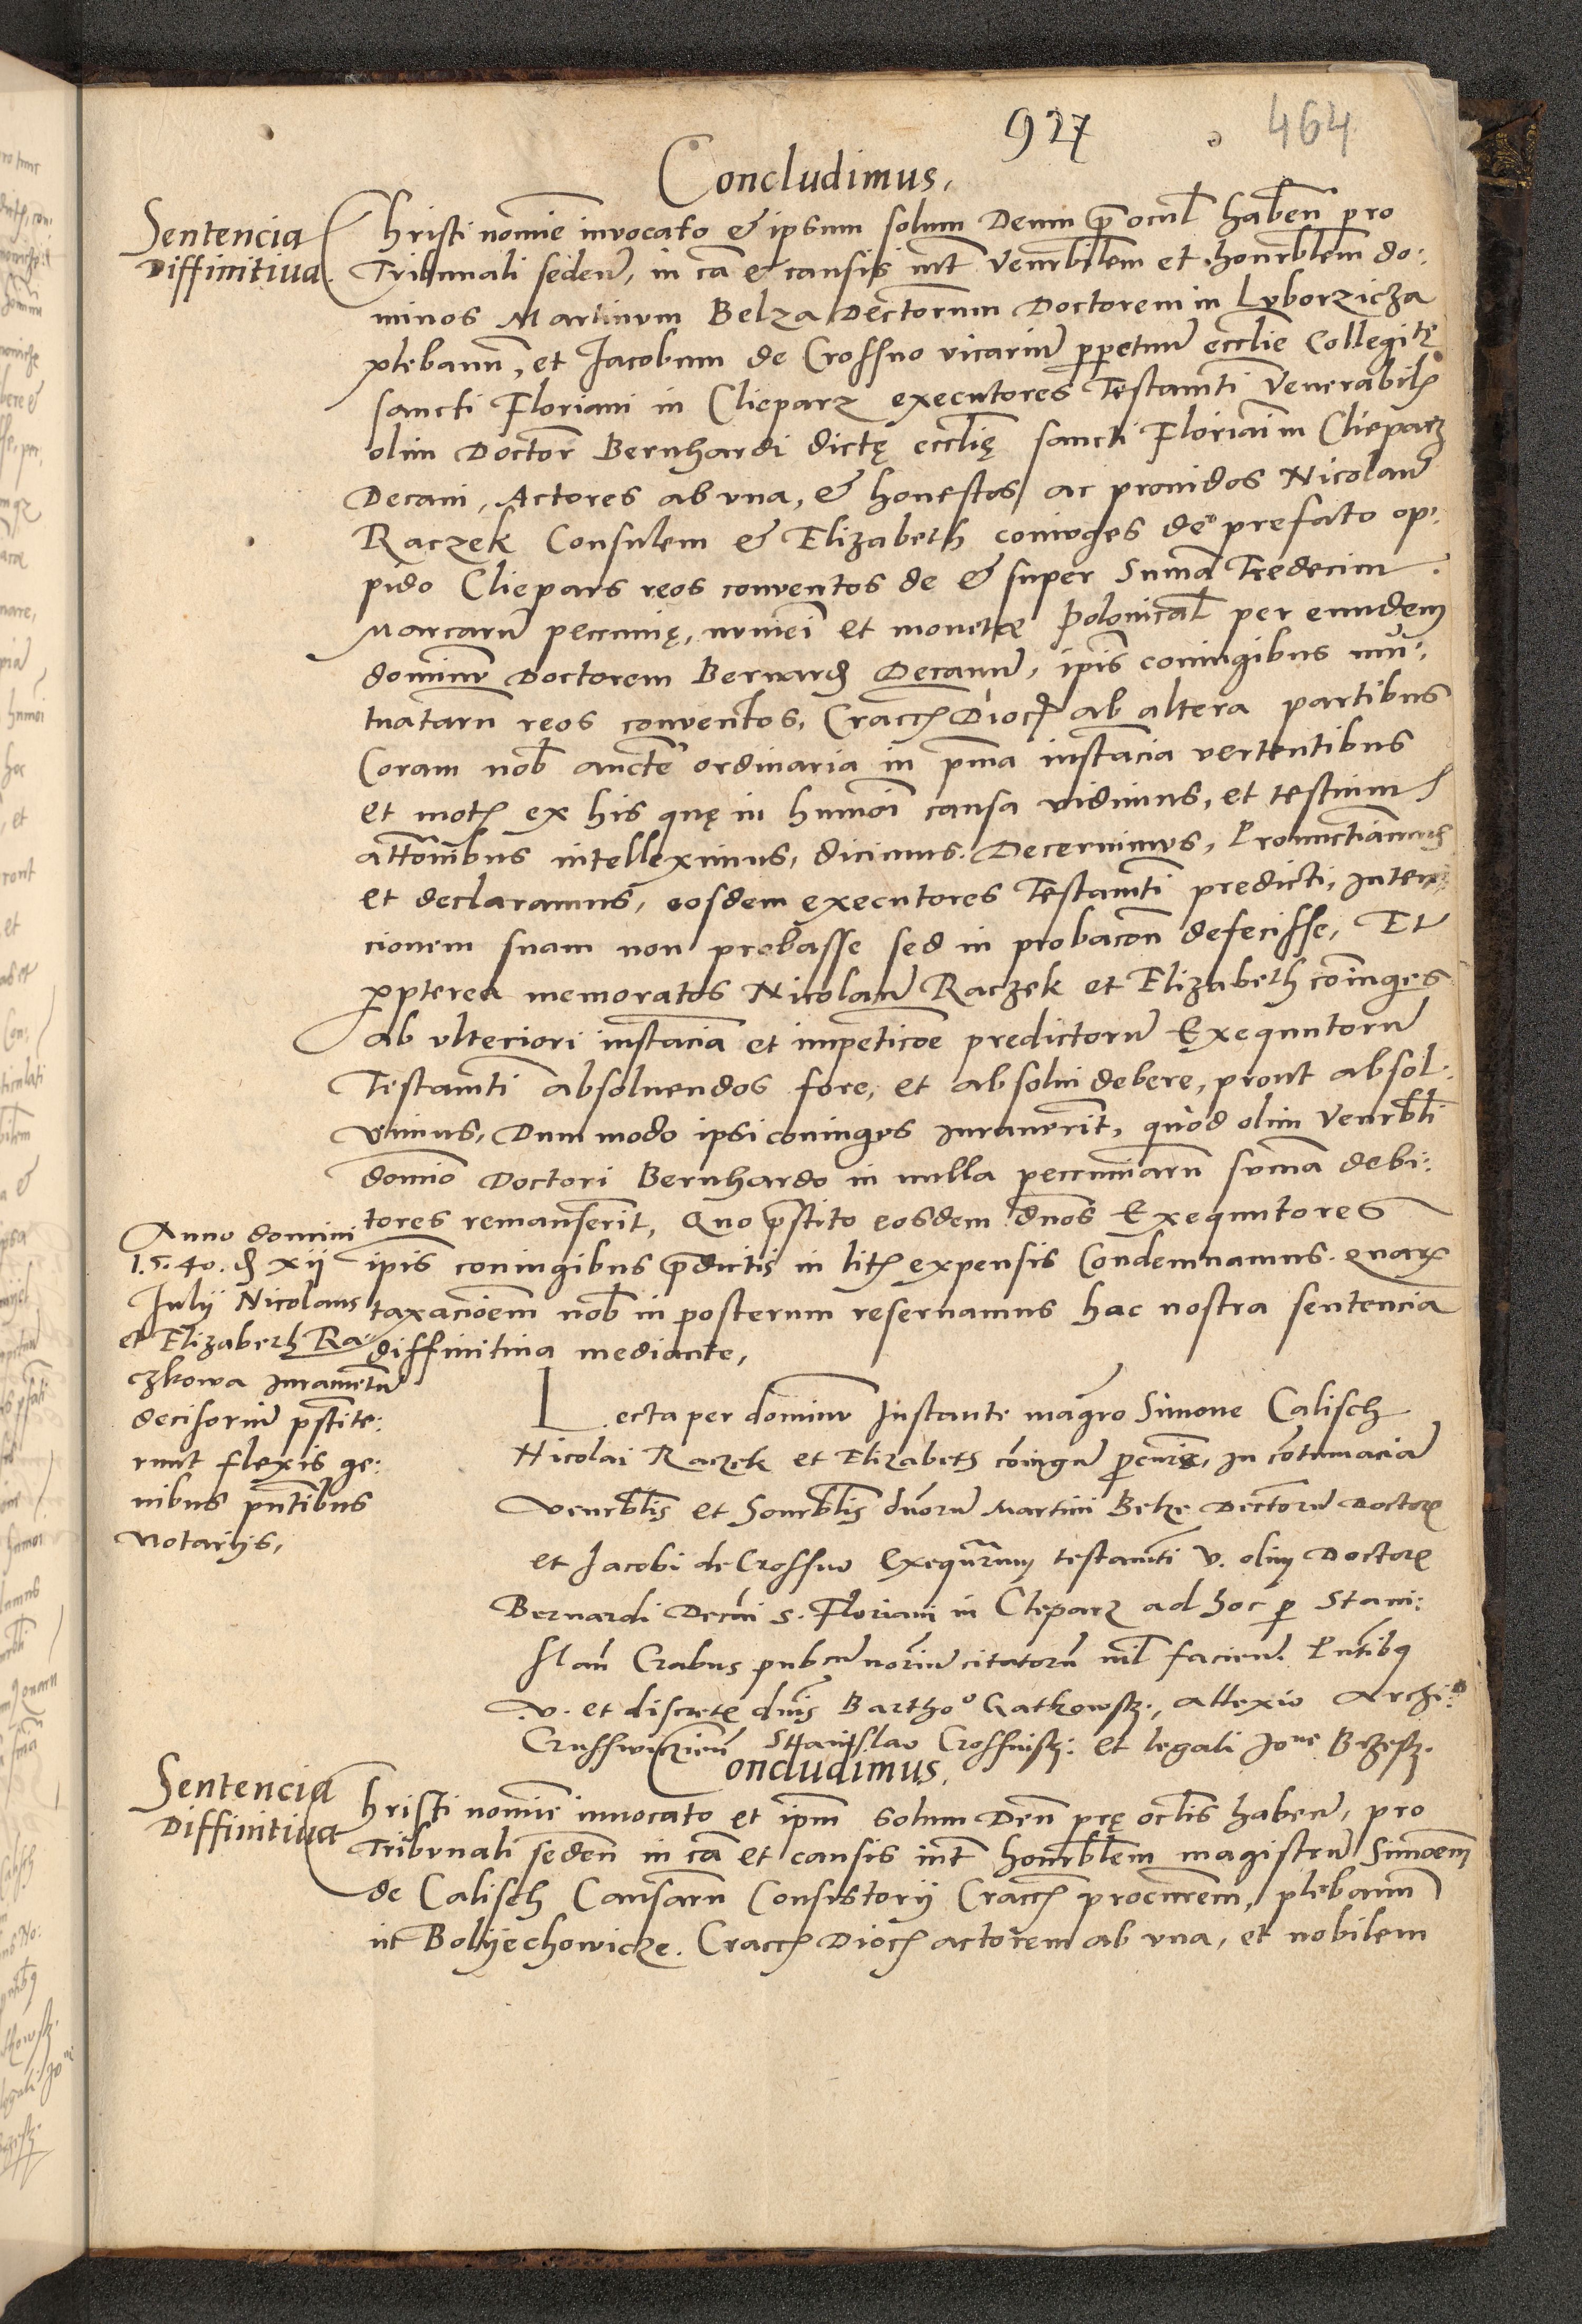 927
464
Concludimus,
Sentencia
Diffinitiua.
Christi nomie invocato & ipsum solum Deum p ocul haben pro
Tribunali seden, in ca & causis int venerbilem et honrblem do:
minos Martinum Belza Dectorum Doctorem in Lvborzicza
plebanu, et Jacobum de Crossno vicariu perpetuu ecclie Collegite
sancti Floriani in Clieparz executores Testamti Venerabilis
olim Doctor Bernhardi dictę ecclię sancti Floriani in Clieparz
Decani, Actores ab vna, & honestos ac prouidos Nicolau
Raczek Consulem & Elizabeth coniuges de prefato op:
pido Cliepars reos conventos de & super Suma Tredecim
Marcaru peccunię, numei et monetæ Polonical per eundem
dominu Doctorem Bernard Decanu, ipis coniugibus mu:
tuataru reos conventos, Craccn Dioc ab altera partibus
Coram nob aucte ordinaria in pma instacia vertentibus
et mot ex his quę in humoi causa vidimus, et testium
attonibus intelleximus, dicimus. Decernimus, Pronunctiamus
et declaramus, eosdem executores Testamti predicti, inten:
cionem suam non probasse sed in probacon defecisse, Et
ppterea memoratos Nicolau Raczek et Elizabeth coniuges
ab vlteriori instacia et impeticoe predictoru Exequutoru
Testamti absoluendos fore, et absolui debere, prout absol:
vimus, Dum modo ipsi coniuges iurauerit, quod olim Venerbli
domio Doctori Bernhardo in nulla peccuniaru suma debi:
tores remanserit, Quo pstito eosdem dnos Exequutores
ipis coniugibus pdictis in lit expensis Condemnamus. quar
taxacioem nob in posterum reseruamus hac nostra sentencia
diffinitiua mediante,
Anno domini
1.5.40. d xii
Julij Nicolaus
et Elizabeth Ra:
czkowa iuramentu
decisoriu pstite:
runt flexis ge:
nibus pntibus
Notarijs,
Lecta per dominu Instante magro Simone Calisch
Nicolai Raczek et Elizabeth coiugu pcure, in cotumacia
Venerblis et honrblis dnoru Martini Belze Dectoru Doctor
et Jacobi de Crossno Exequutorum testamti v. olim Doctor
Bernardi Decni s. Floriani in Cleparz ad hoc p Stani:
slau Crabus pubcu noriu citatoru nil facien. Pntibq
v. et discret dnis Bartho Gatkowsk., Allexio Archi:
Crusswicien Stanislao Crossnisk: et legali Jone Bezesk.
Concludimus.
Sentencia
Diffinitiua
Christi nomie inuocato et ipm solum Deu prę oclis haben, pro
Tribvnali seden in ca et causis int honrblem magistru Simoem
de Calisch Causaru Consistorij Craccn procurem, plebanu
in Bolijechowicze. Craccn Dioc actorem ab vna, et nobilem